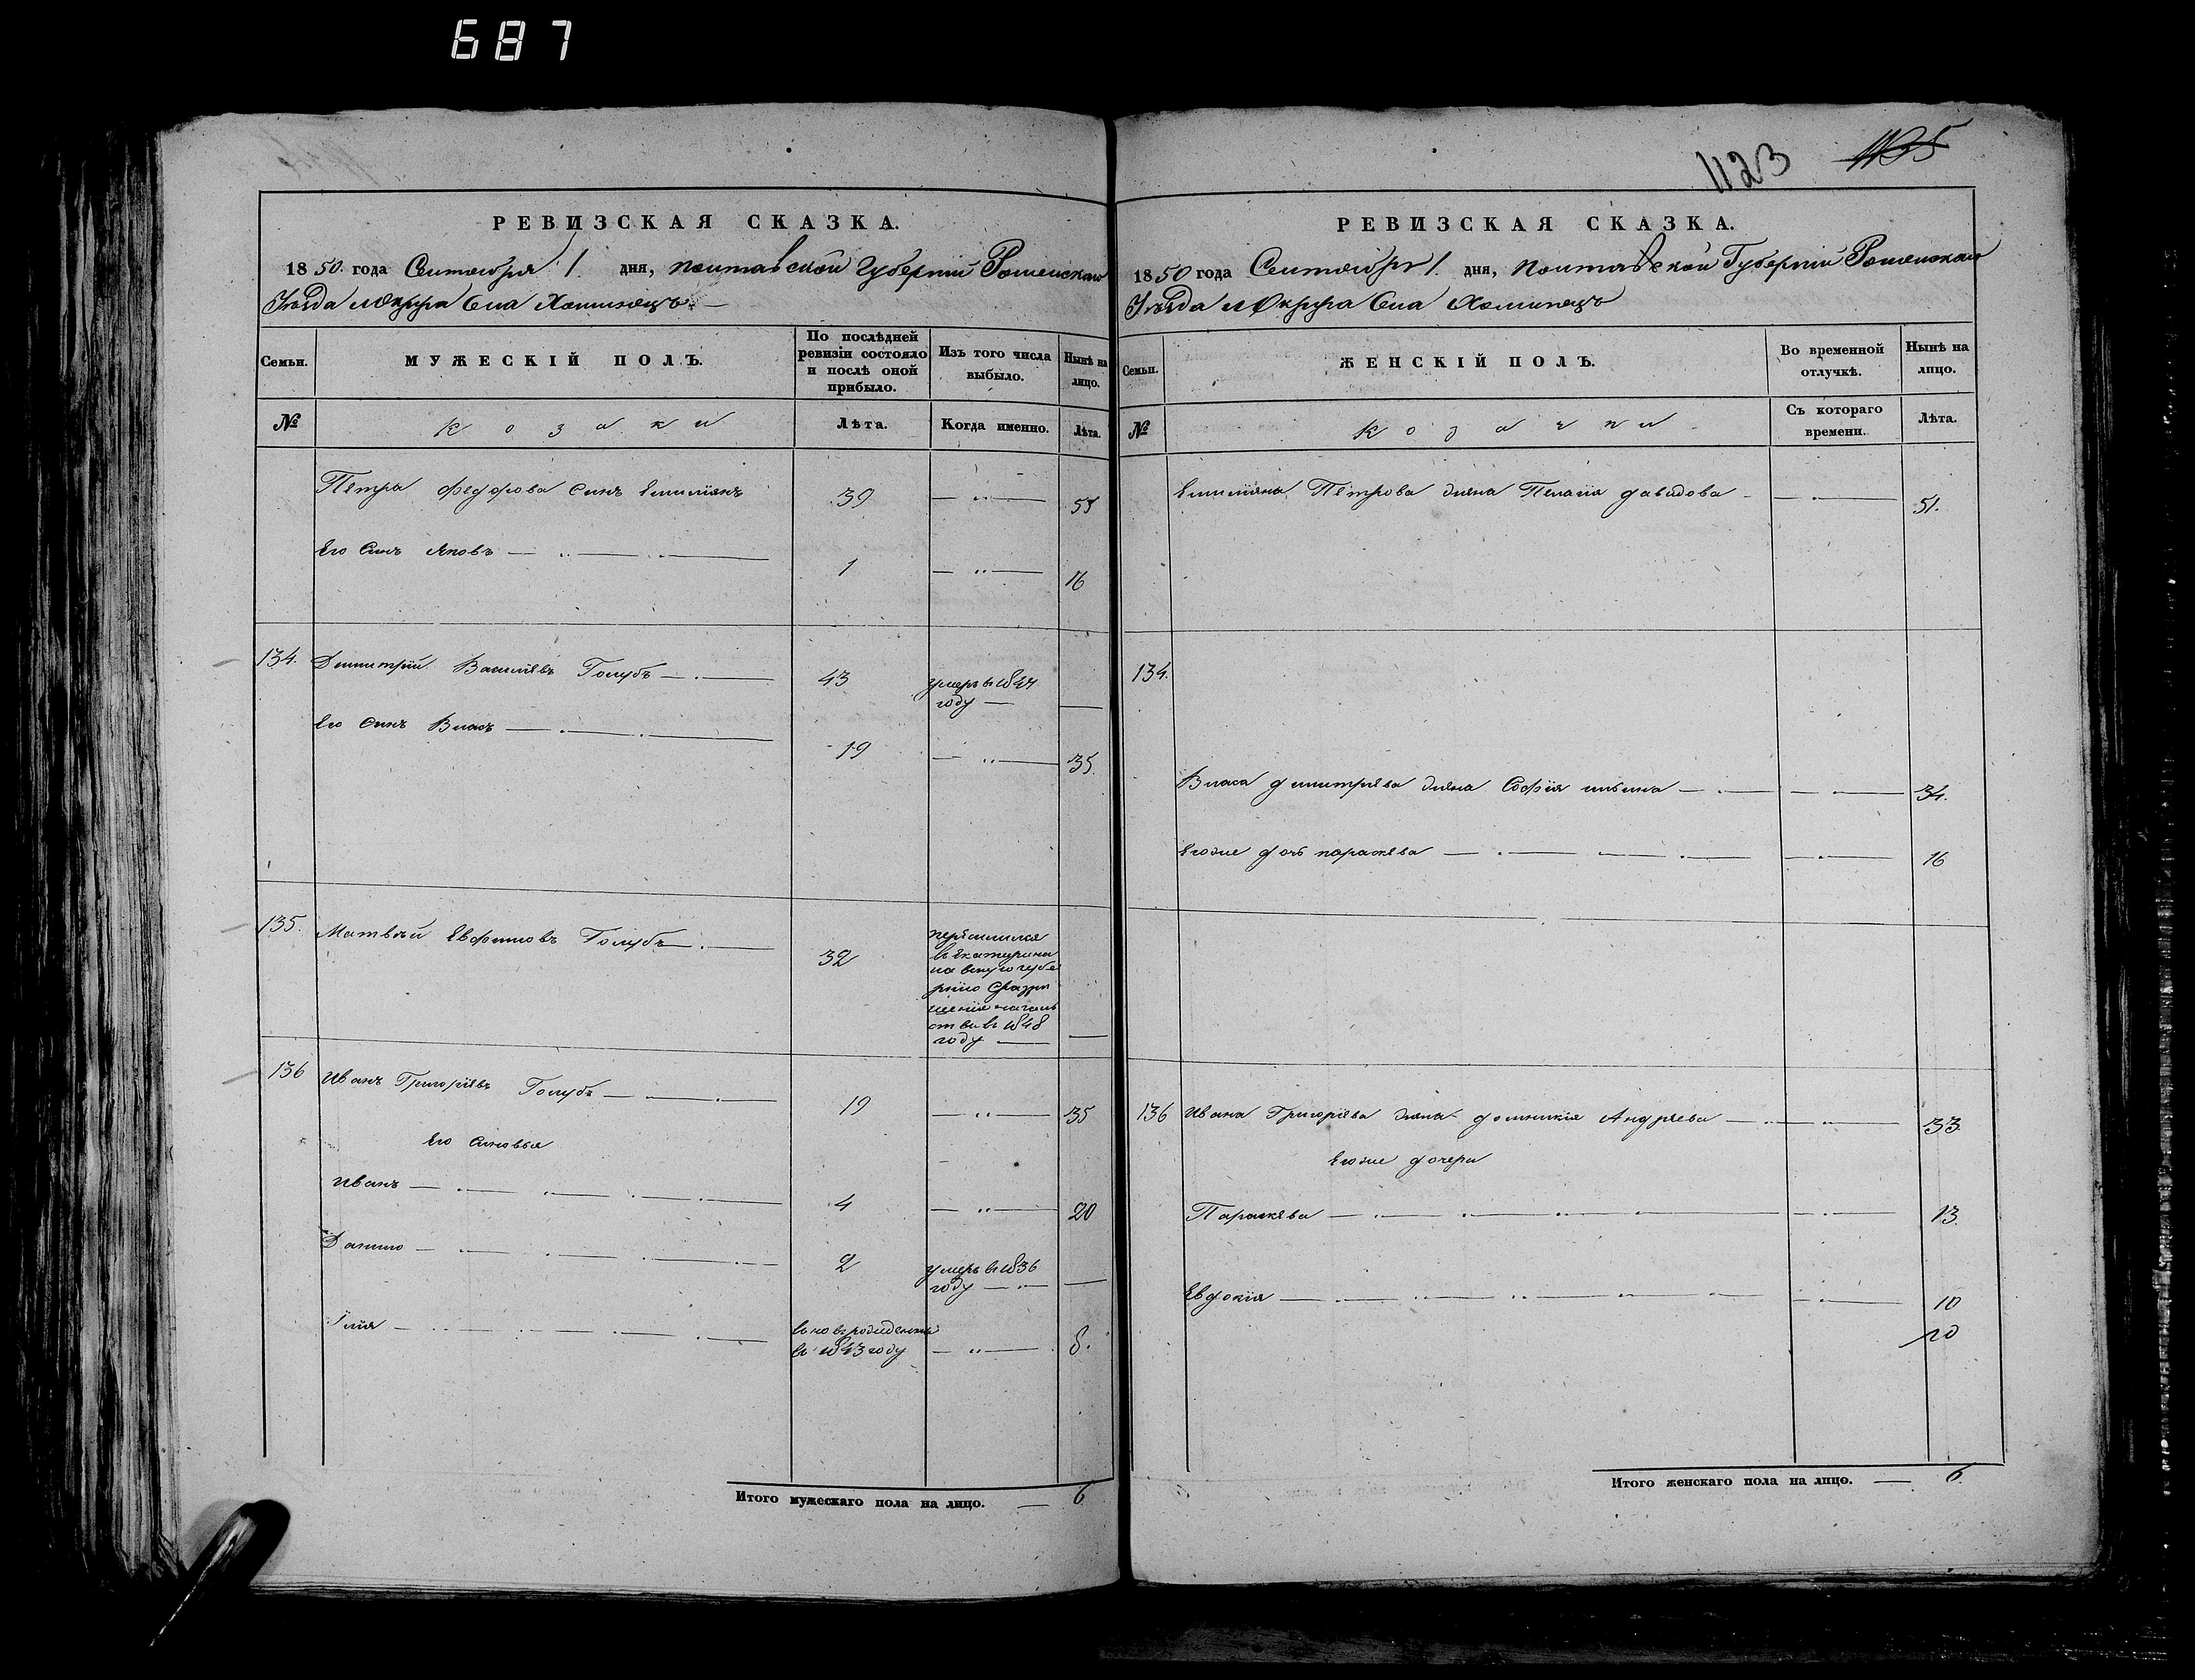 687
1123 1135
РЕВИЗСКАЯ СКАЗКА.
1850. года Сентября 1. дня, Полтавской Губерніи Роменскаго
Уѣзда 1 Округа Села Хоминець
Семьи. МУЖЕСКІЙ ПОЛЪ. По послѣдней ревизіи состояло и послѣ оной прибыло. Изъ того числа выбыло. Нынѣ на лицо.
№ Козаки Лѣта. Когда именно. Лѣта.
Петра Федорова Синъ Емилиянъ 39 55
Его Синъ Яковъ 1 16
134. Димитрій Василіевъ Голубъ 43 умеръ въ 1844 году
Его Синъ Власъ 19 35.
135. Матвѣй Евфимовъ Голубъ 32 переселился
въ Екатерино
славскую губе
рнію Сразре
шенія началь
ства въ 1848
году
136 Иванъ Григоріевъ Голубъ 19 35
Его Синовья
Иванъ 4 20
Данило 2 умеръ въ 1836 году
Илія вновърожденный
въ 1843 году 8.
Итого мужескаго пола на лицо. 6
РЕВИЗСКАЯ СКАЗКА.
1850 года Сентября 1. дня, Полтавской Губерніи Роменскаго
Уѣзда 1 Округа Села Хоминець
Семьи. ЖЕНСКІЙ ПОЛЪ. Во временной отлучкѣ. Нынѣ на лицо.
№ Козачки Съ котораго времени. Лѣта.
Емилияна Петрова жена Пелагія давидова 51.
134.
Власа димитрієва жена Софія ильина 34.
Егоже дочь параскева 16
136 Ивана Григоріева жена домникія Андреева 33
Егоже дочери
Параскева 13.
Евдокія 10
10
Итого женскаго пола на лицо. 6.